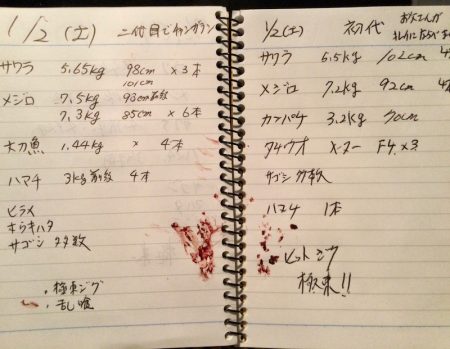 1/2 (土) 二代目でインガン
サワラ 5.65kg 98cm × 3本
101cm
メジロ 7.5kg 93cm前後
7.3kg 85cm × 6本
太刀魚 1.44kg × 4本
ハマチ 3kg前後 4本
ヒラメ
オオキハタ
サゴシ 多数
・極東ジグ
・乱喰
1/2(土) 初代 お父さんが
サワラ 6.5kg 102cm
メジロ 7.2kg 92cm
カンパチ 3.2kg 70cm
タチウオ F4.×3
サゴシ 多数
ハマチ 1本
ヒットジグ
極東!!